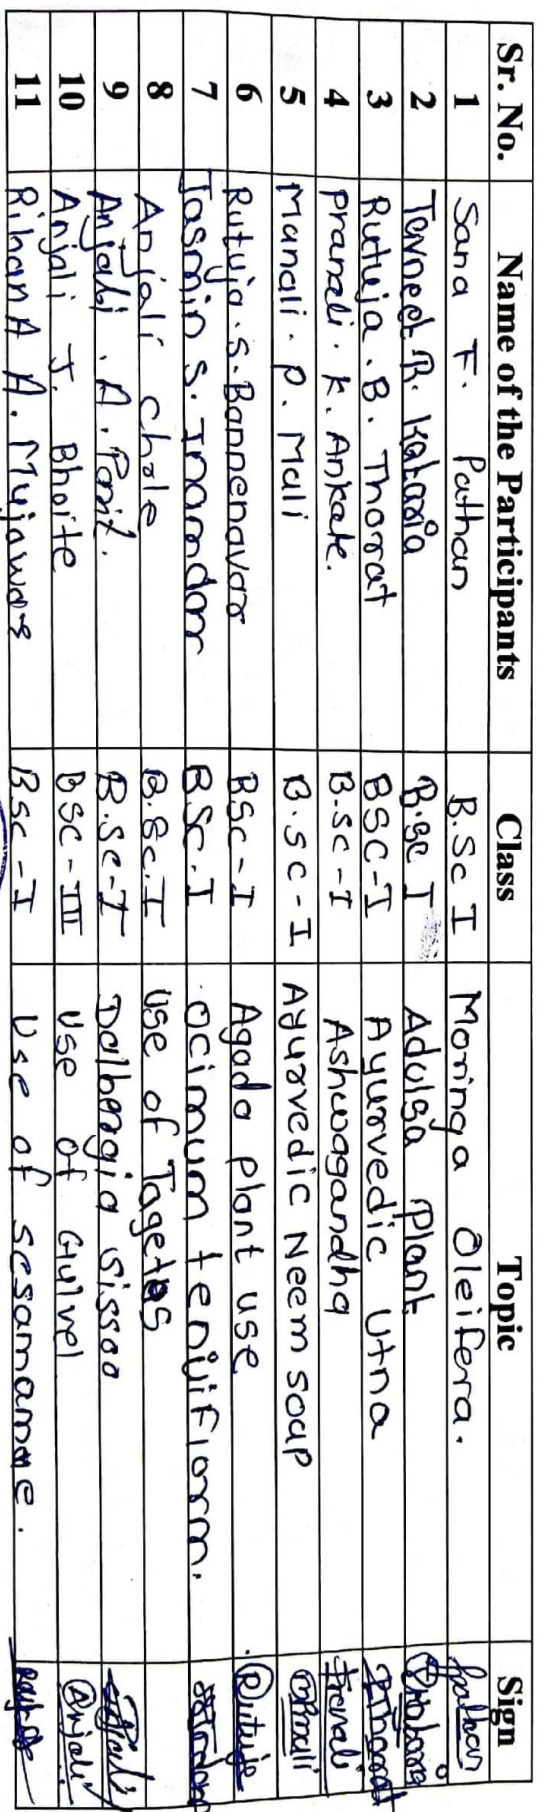 Sr. No. Name of the Participants Class Topic Sign
1 Sana F. Pathan B.Sc I Moringa Oleifera. Pathan
2 R. Kataria B.Sc I Adulsa Plant
3 Rutuja . B. Thorat BSC-I Ayurvedic Utna Thorat
4 Pranali. K. Ankale. B.SC-I Ashwagandha
5 Manali. P. Mali B.SC-I Ayurvedic Neem soap
6 Rutuja.S.Bannenavar BSC-I Agada plant use Rutuja
7 Jasmin S. Inamdar BSC.I ocimum tenuiflorm.
8 Anjali chole B.Sc.I Use of Tagetes
9 Anjali . A. B.SC-I Dalbergia sissoo
10 Anjali J. Bhoite BSC-III Use of Gulvel Anjali
11 RihanA A. Mujawar BSC-I Use of